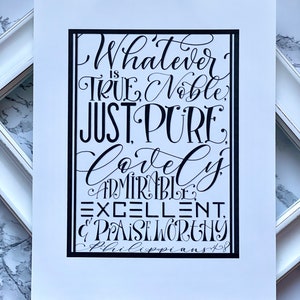 Whatever
is
TRUE, Noble,
JUST, PURE,
lovely,
ADMIRABLE,
EXCELLENT,
& PRAISEWORTHY
Philippians 4:8